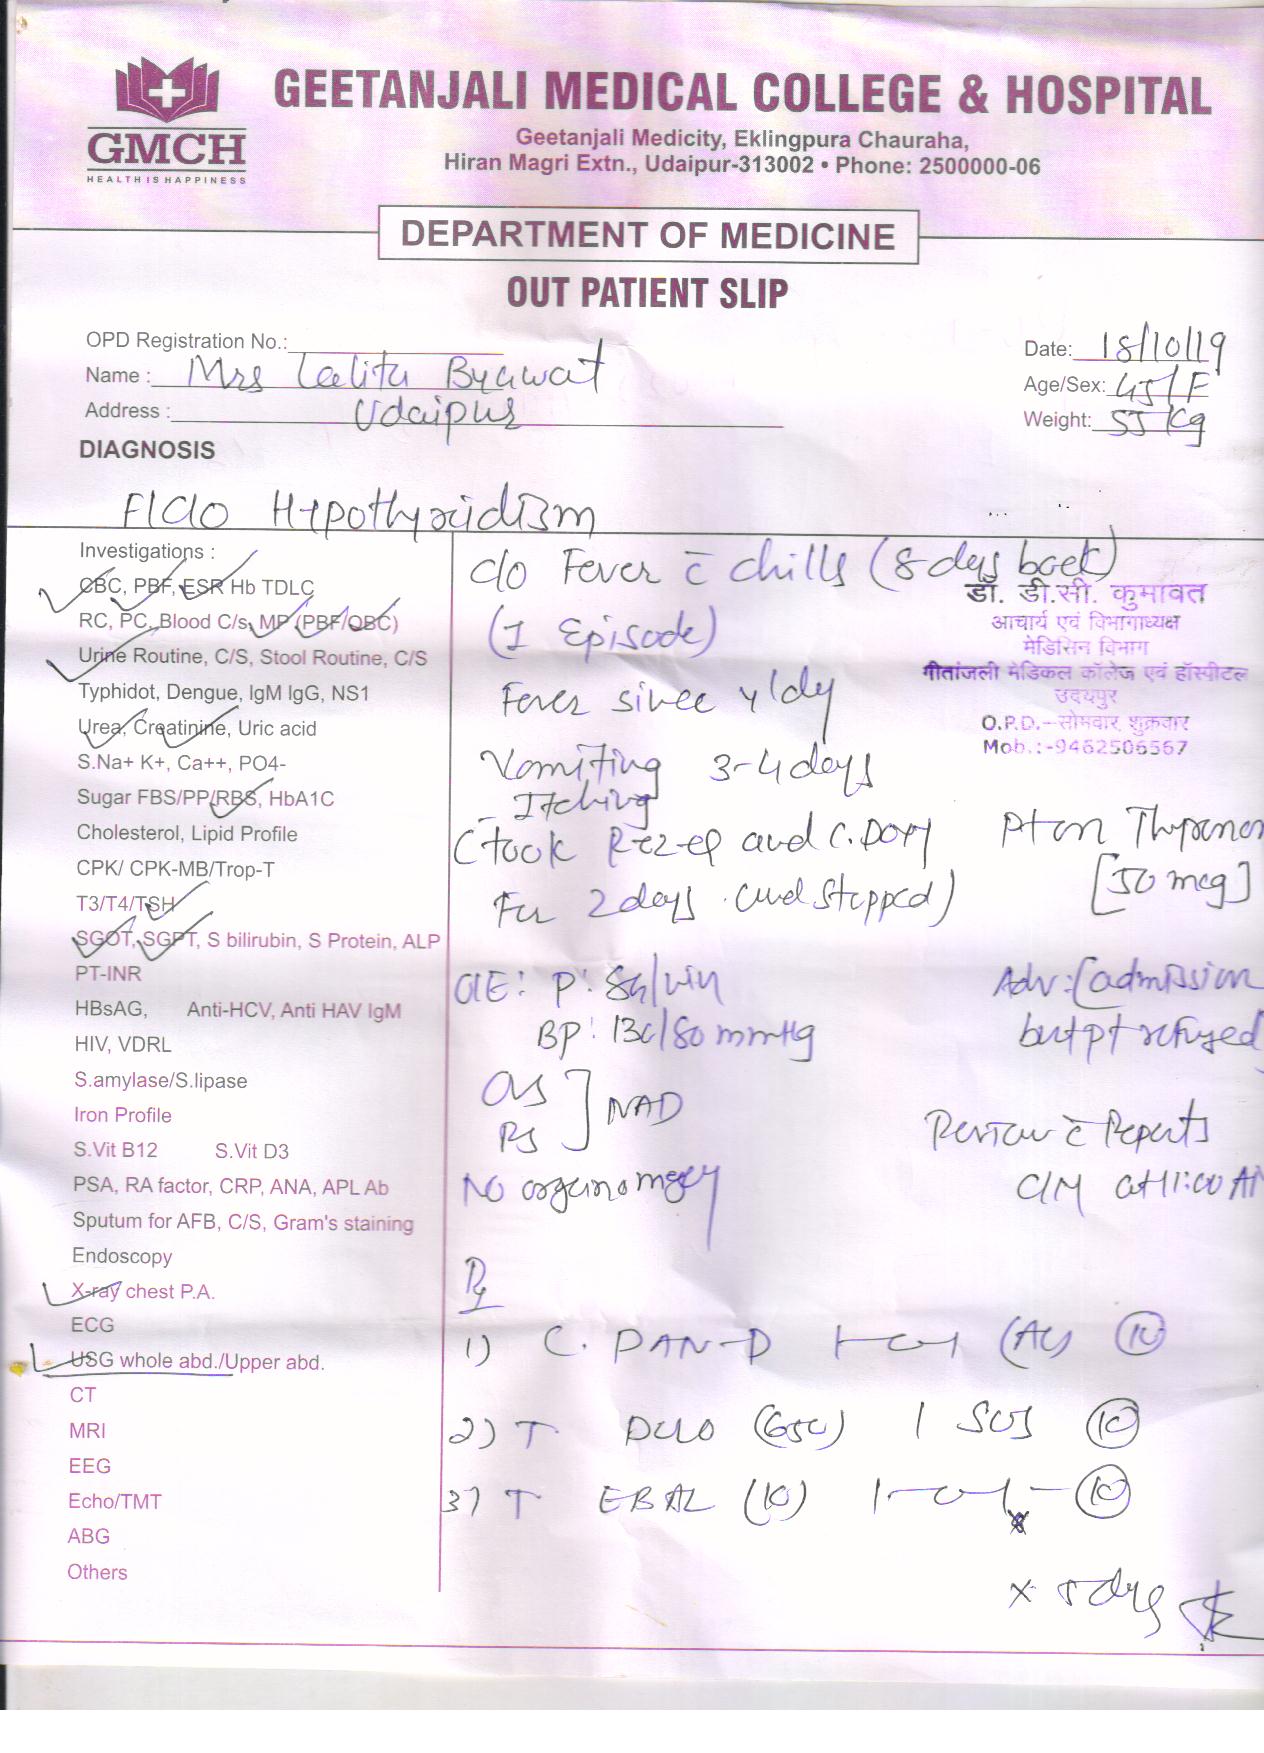 GMCH
HEALTH IS HAPPINESS
GEETANJALI MEDICAL COLLEGE & HOSPITAL
Geetanjali Medicity, Eklingpura Chauraha,
Hiran Magri Extn., Udaipur-313002 • Phone: 2500000-06
DEPARTMENT OF MEDICINE
OUT PATIENT SLIP
OPD Registration No.:
Name : Mrs Lalita Byawat
Address : Udaipur
Date: 18/10/19
Age/Sex: 45/F
Weight: 55 Kg
DIAGNOSIS
F/C/O Hypothyroidism
Investigations :
CBC, PBF, ESR Hb TDLC
RC, PC, Blood C/s, MP (PBF/QBC)
Urine Routine, C/S, Stool Routine, C/S
Typhidot, Dengue, IgM IgG, NS1
Urea, Creatinine, Uric acid
S.Na+ K+, Ca++, PO4-
Sugar FBS/PP/RBS, HbA1C
Cholesterol, Lipid Profile
CPK/ CPK-MB/Trop-T
T3/T4/TSH
SGOT, SGPT, S bilirubin, S Protein, ALP
PT-INR
HBsAG, Anti-HCV, Anti HAV IgM
HIV, VDRL
S.amylase/S.lipase
Iron Profile
S.Vit B12 S.Vit D3
PSA, RA factor, CRP, ANA, APL Ab
Sputum for AFB, C/S, Gram's staining
Endoscopy
X-ray chest P.A.
ECG
USG whole abd./Upper abd.
CT
MRI
EEG
Echo/TMT
ABG
Others
c/o Fever c̄ chills (8 days back)
(1 Episode)
Fever since y/day
Vomiting 3-4 days
- Itching
(took and C. Doxy
For 2 days and stopped)
डॉ. डी.सी. कुमावत
आचार्य एवं विभागाध्यक्ष
मेडिसिन विभाग
गीतांजली मेडिकल कॉलेज एवं हॉस्पीटल
उदयपुर
O.P.D.-सोमवार, शुक्रवार
Mob.:-9462506567
Pt on Thyronor
[50 mcg]
O/E: P: 84/min
BP: 130/80 mmHg
CVS
RS ] NAD
No organomegaly
Adv: (admission
but pt refused
Review c̄ Reports
C/M at 11:00 AM
Rx
1) C. PAN-D 1-0-1 (AC) (10)
2) T DOLO (650) 1 SOS (10)
3) T EBAL (10) 1-0-1 - (10)
x 5 days